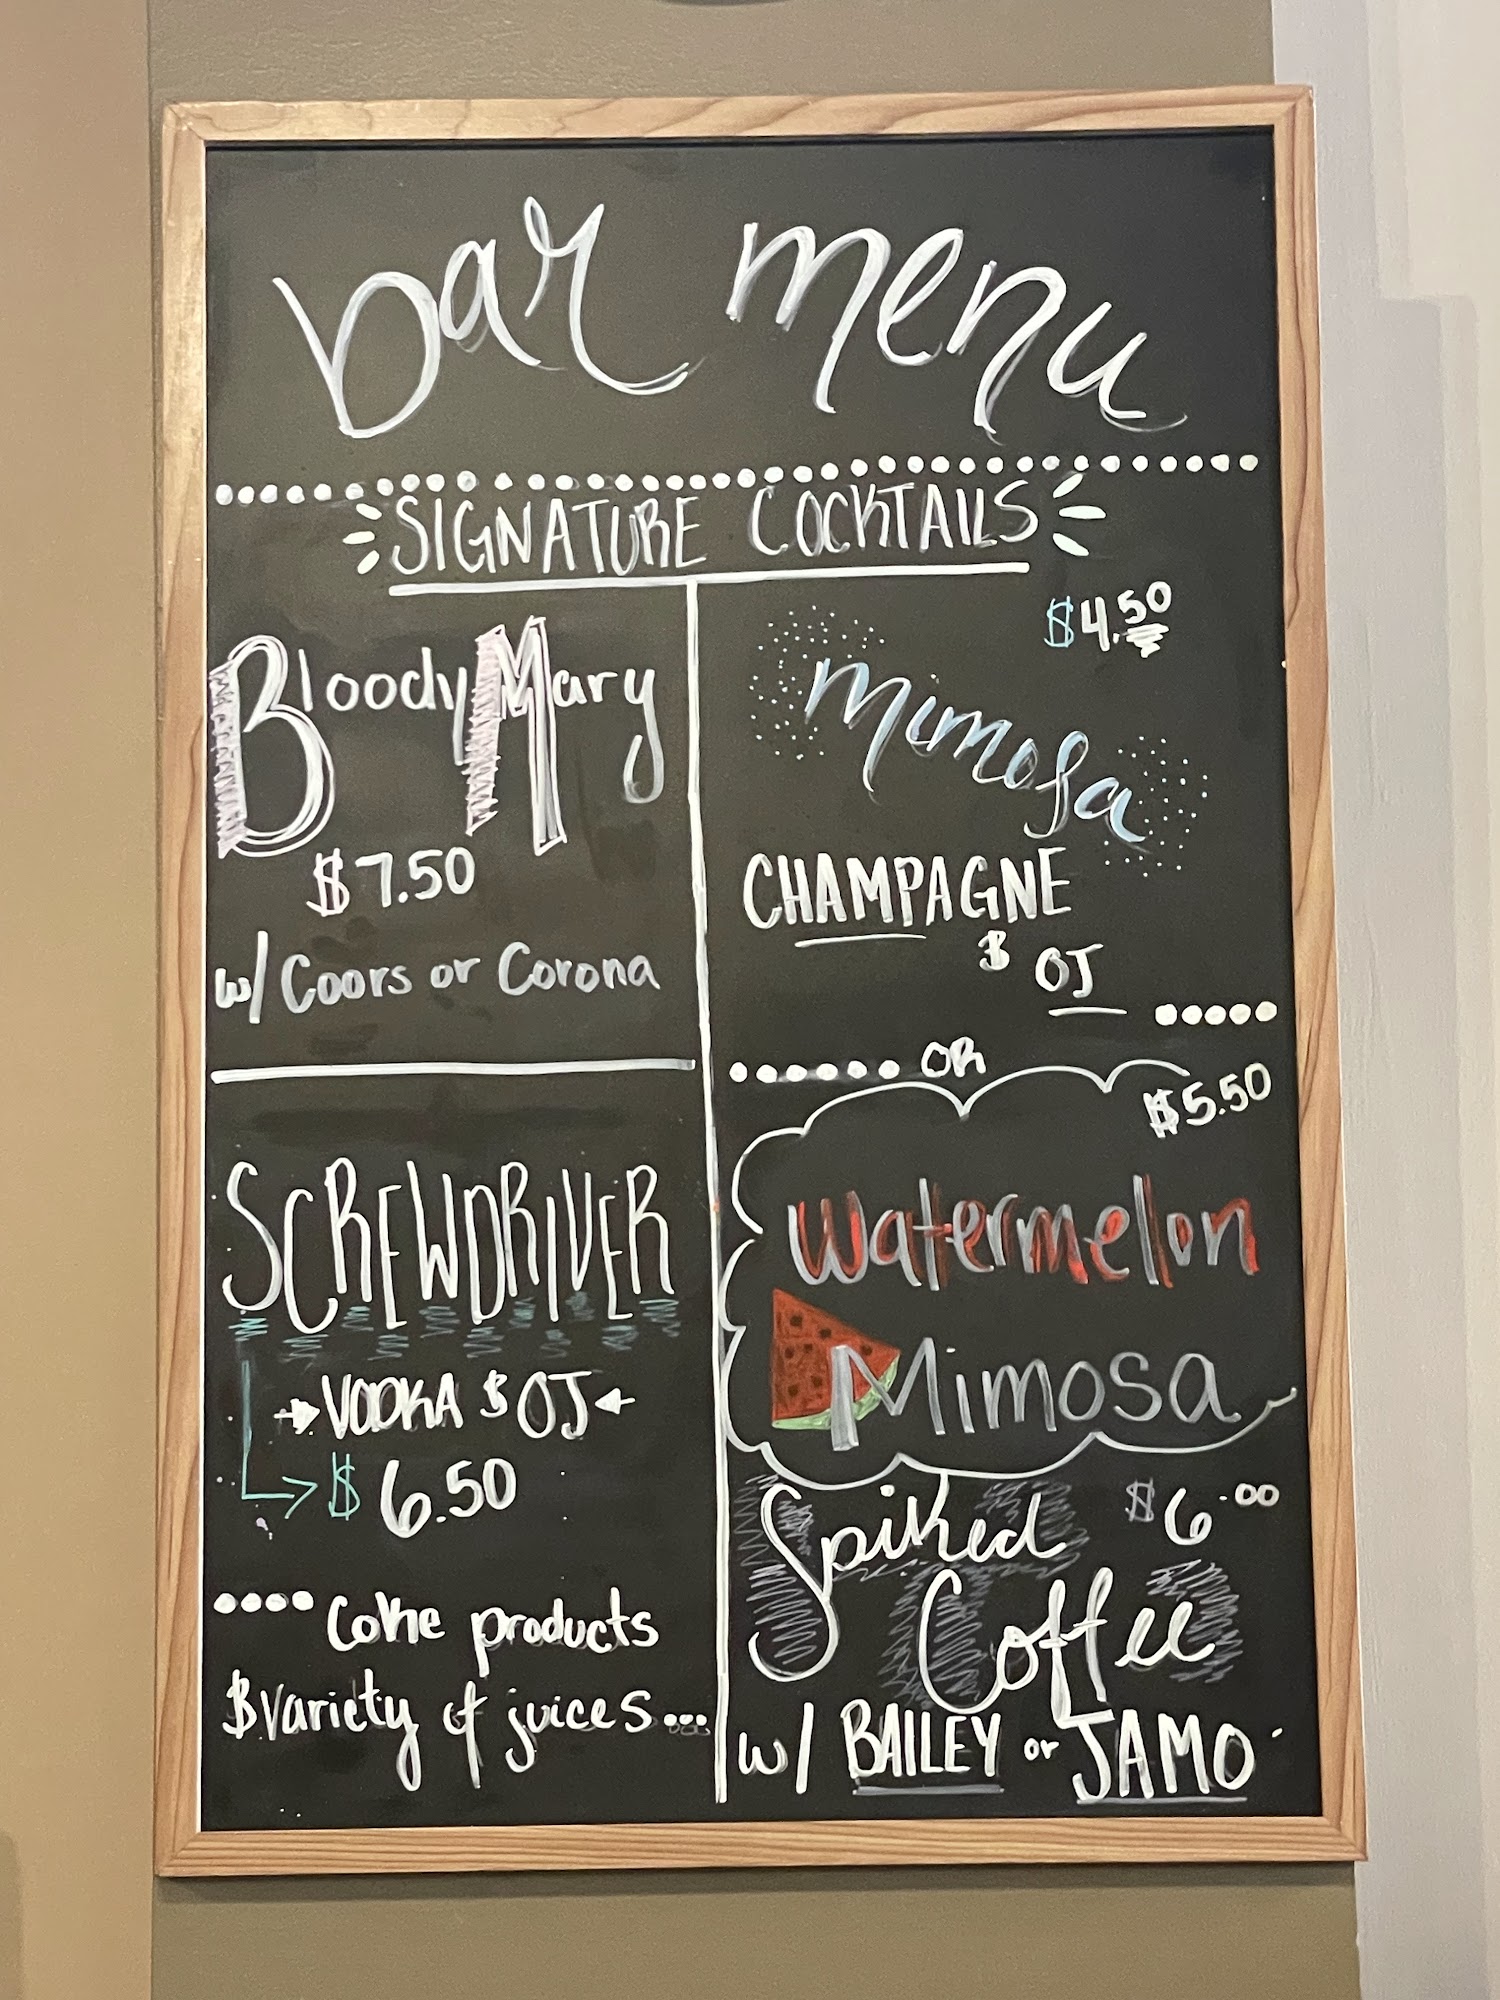 bar menu
SIGNATURE COCKTAILS
Bloody Mary
$7.50
w/ Coors or Corona
SCREWDRIVER
VODKA & OJ
$6.50
Coke products
& variety of juices...
$4.50
Mimosa
CHAMPAGNE
& OJ
OR
$5.50
Watermelon
Mimosa
Spiked $6.00
Coffee
w/ BAILEY or JAMO